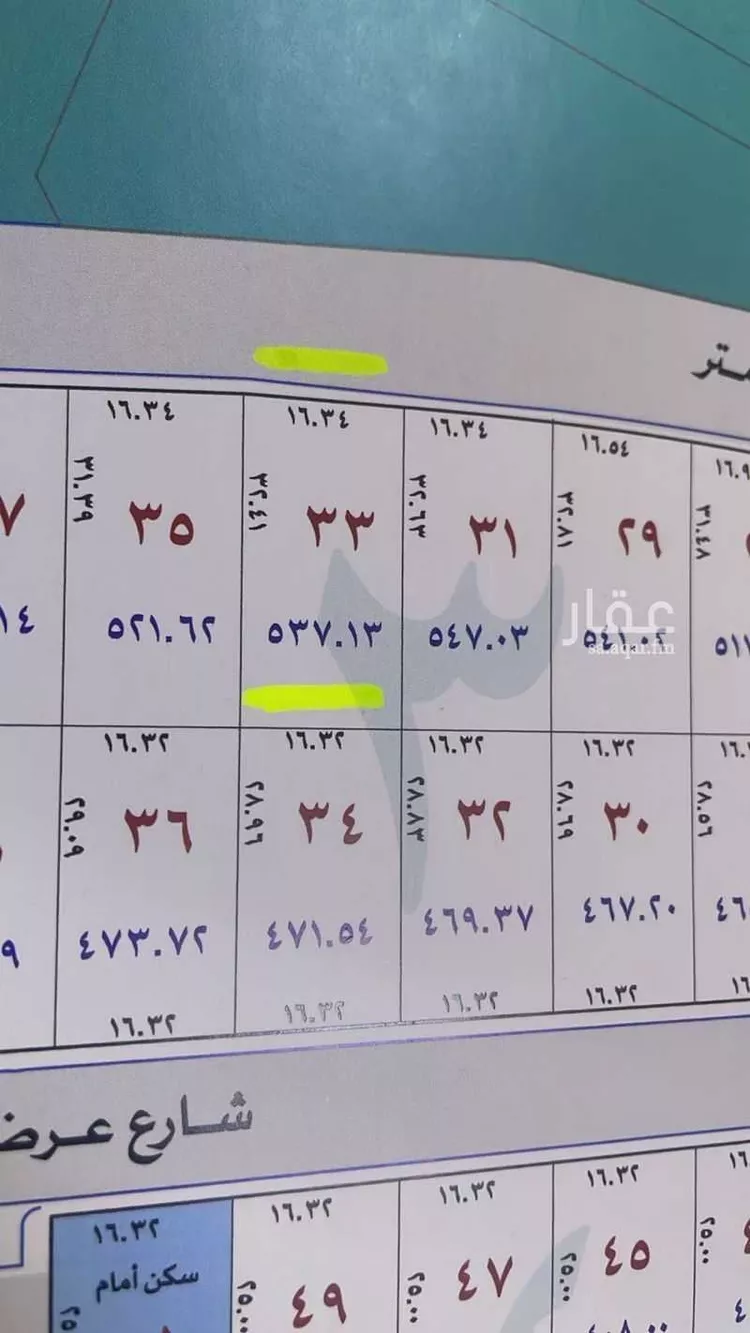 متر
١٦.٣٤ ١٦.٣٤ ١٦.٣٤ ١٦.٥٤ ١٦.٩
٣١.٣٩ ٣٢.٤١ ٣٢.٦٣ ٣٢.٨١ ٣١.٤٨
٧ ٣٥ ٣٣ ٣١ ٢٩
عقار
sa.aqar.fm
١٤ ٥٢١.٦٢ ٥٣٧.١٣ ٥٤٧.٠٣ ٥٤١.٠٢ ٥١١
٣
١٦.٣٢ ١٦.٣٢ ١٦.٣٢ ١٦.٣٢ ١٦.
٢٩.٠٩ ٢٨.٩٦ ٢٨.٨٣ ٢٨.٦٩ ٢٨.٥٦
٣٦ ٣٤ ٣٢ ٣٠
٩ ٤٧٣.٧٢ ٤٧١.٥٤ ٤٦٩.٣٧ ٤٦٧.٢٠ ٤٦
١٦.٣٢ ١٦.٣٢ ١٦.٣٢ ١٦.٣٢ ١٦
شارع عرض
١٦.٣٢ ١٦.٣٢ ١٦.٣٢ ١٦.٣٢ ١٦
سكن أمام
٢٥ ٢٥.٠٠ ٢٥.٠٠ ٢٥.٠٠ ٢٥.٠٠
٤٩ ٤٧ ٤٥